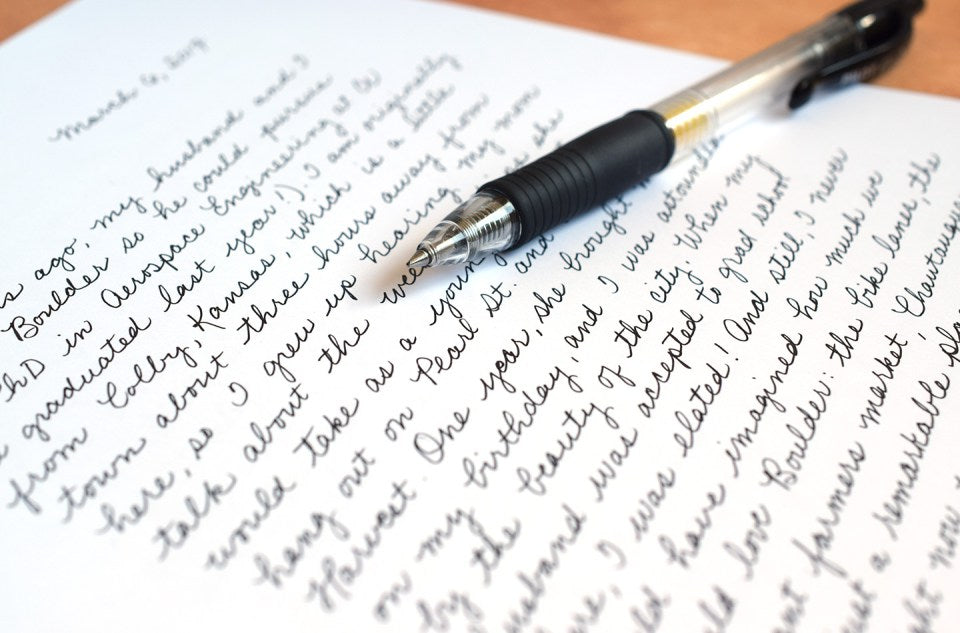 March 6,
ago, my husband and I
Boulder so he could pursue
PhD in Aerospace Engineering at
graduated last year!). I am originally
from Colby, Kansas, which is a little
town about three hours away from
here, so I grew up hearing my mom
talk about the wee she
would take as a young
hang out on Pearl St. and
Harvest. One year, she brought
on my birthday, and I was
by the beauty of the city. When my
usband was accepted to grad school
re, I was elated! And still, I never
ld have imagined how much we
ld love Boulder: the bike lanes, the
nt farmers market, Chautauqu
st a remarkable pla
ght now